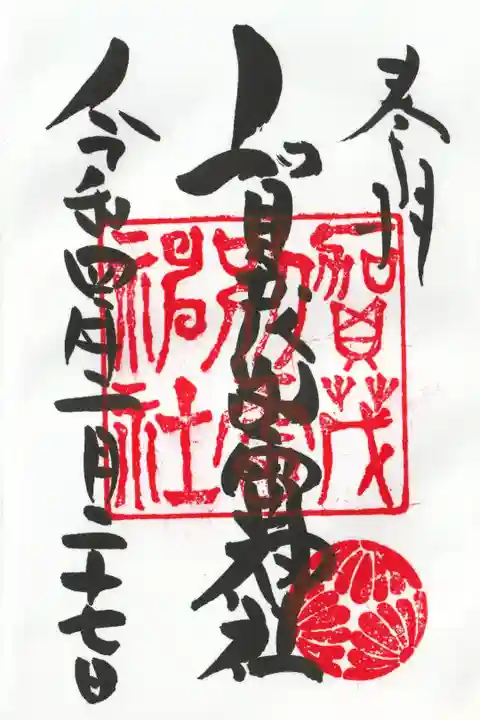 奉拝
賀茂別雷神社
令和四年二月二十七日
賀茂
別雷
神社